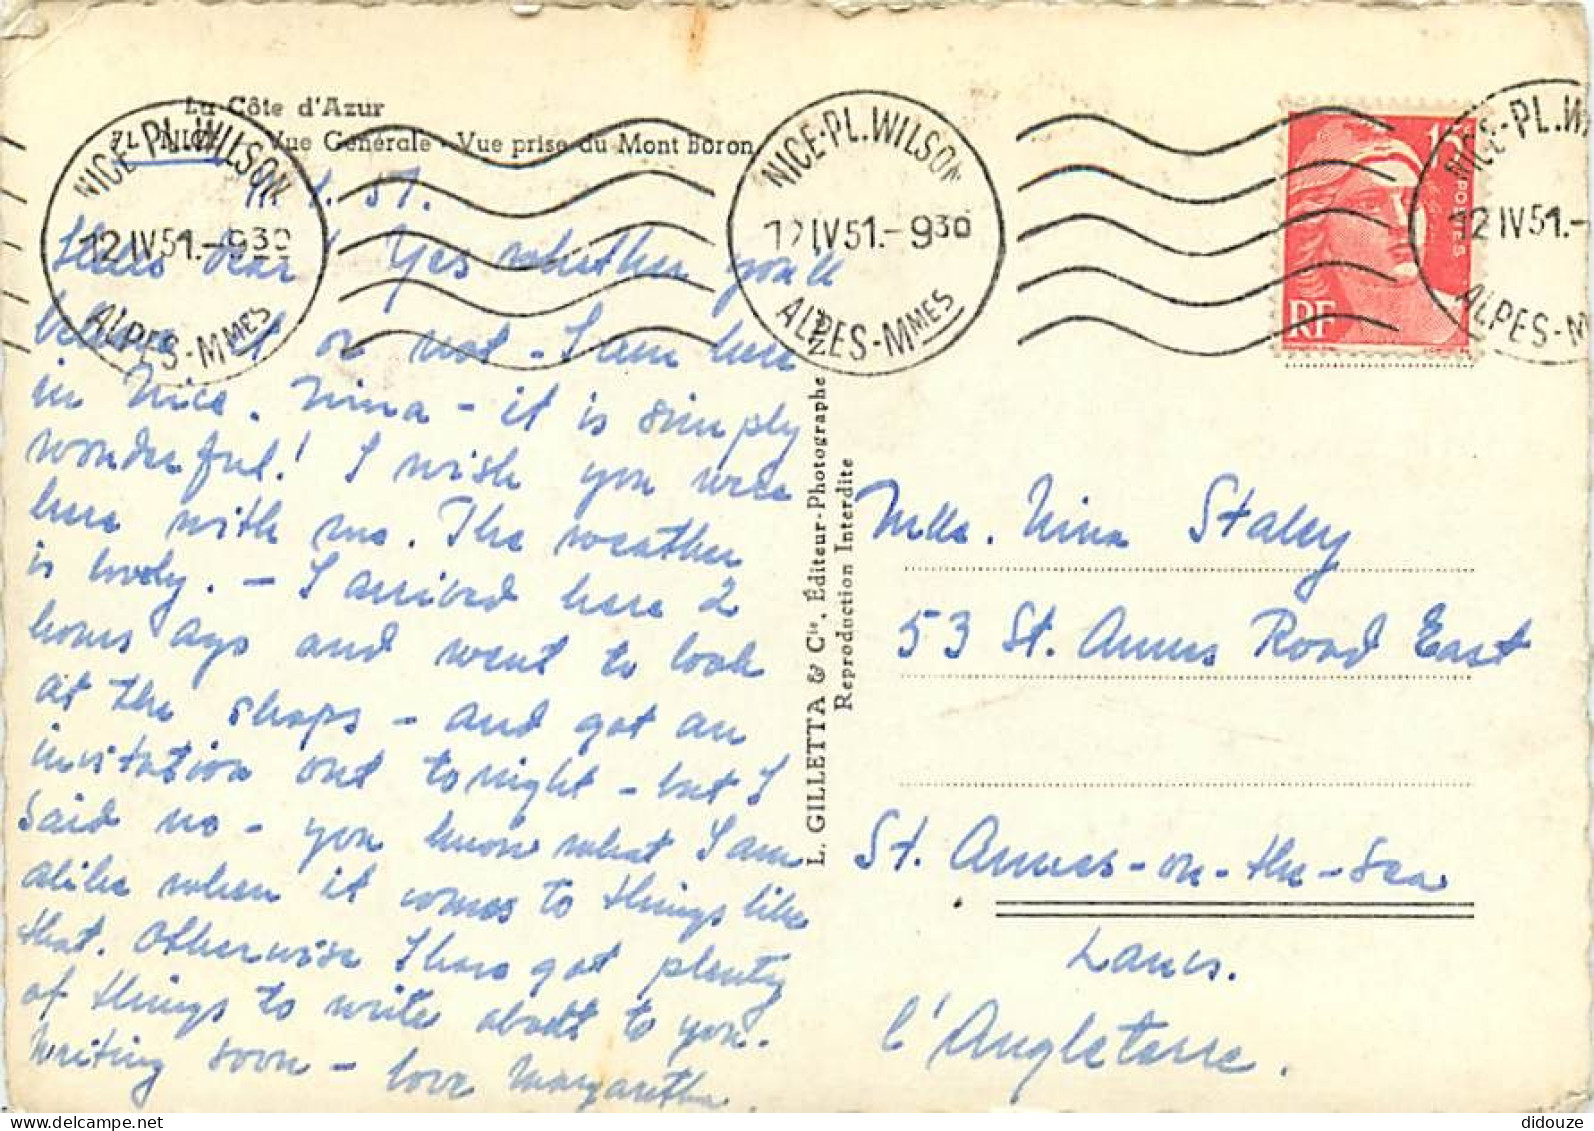 La Côte d'Azur
71. NICE - Vue Générale - Vue prise du Mont Boron
NICE-PL.WILSON
12 IV 51.- 9 30
ALPES-MMES
NICE-PL.WILSON
12 IV 51.- 9 30
ALPES-MMES
NICE-PL.W
12 IV 51.-
ALPES-M
POSTES
RF
51.
Hello dear! Yes whether you'll
believe it or not - I am here
in Nice. Nina - it is simply
wonderful! I wish you were
here with me. The weather
is lovely. - I arrived here 2
hours ago and went to look
at the shops - and got an
invitation out tonight - but I
said no - you know what I am
alike when it comes to things like
that. Otherwise I have got plenty
of things to write about to you.
Writing soon - love Margaretha.
L. GILLETTA & Cie, Éditeur-Photographe
Reproduction Interdite
Mlle. Nina Staley
53 St. Annes Road East
St. Annes-on-the-Sea
Lancs.
l'Angleterre.
didouze